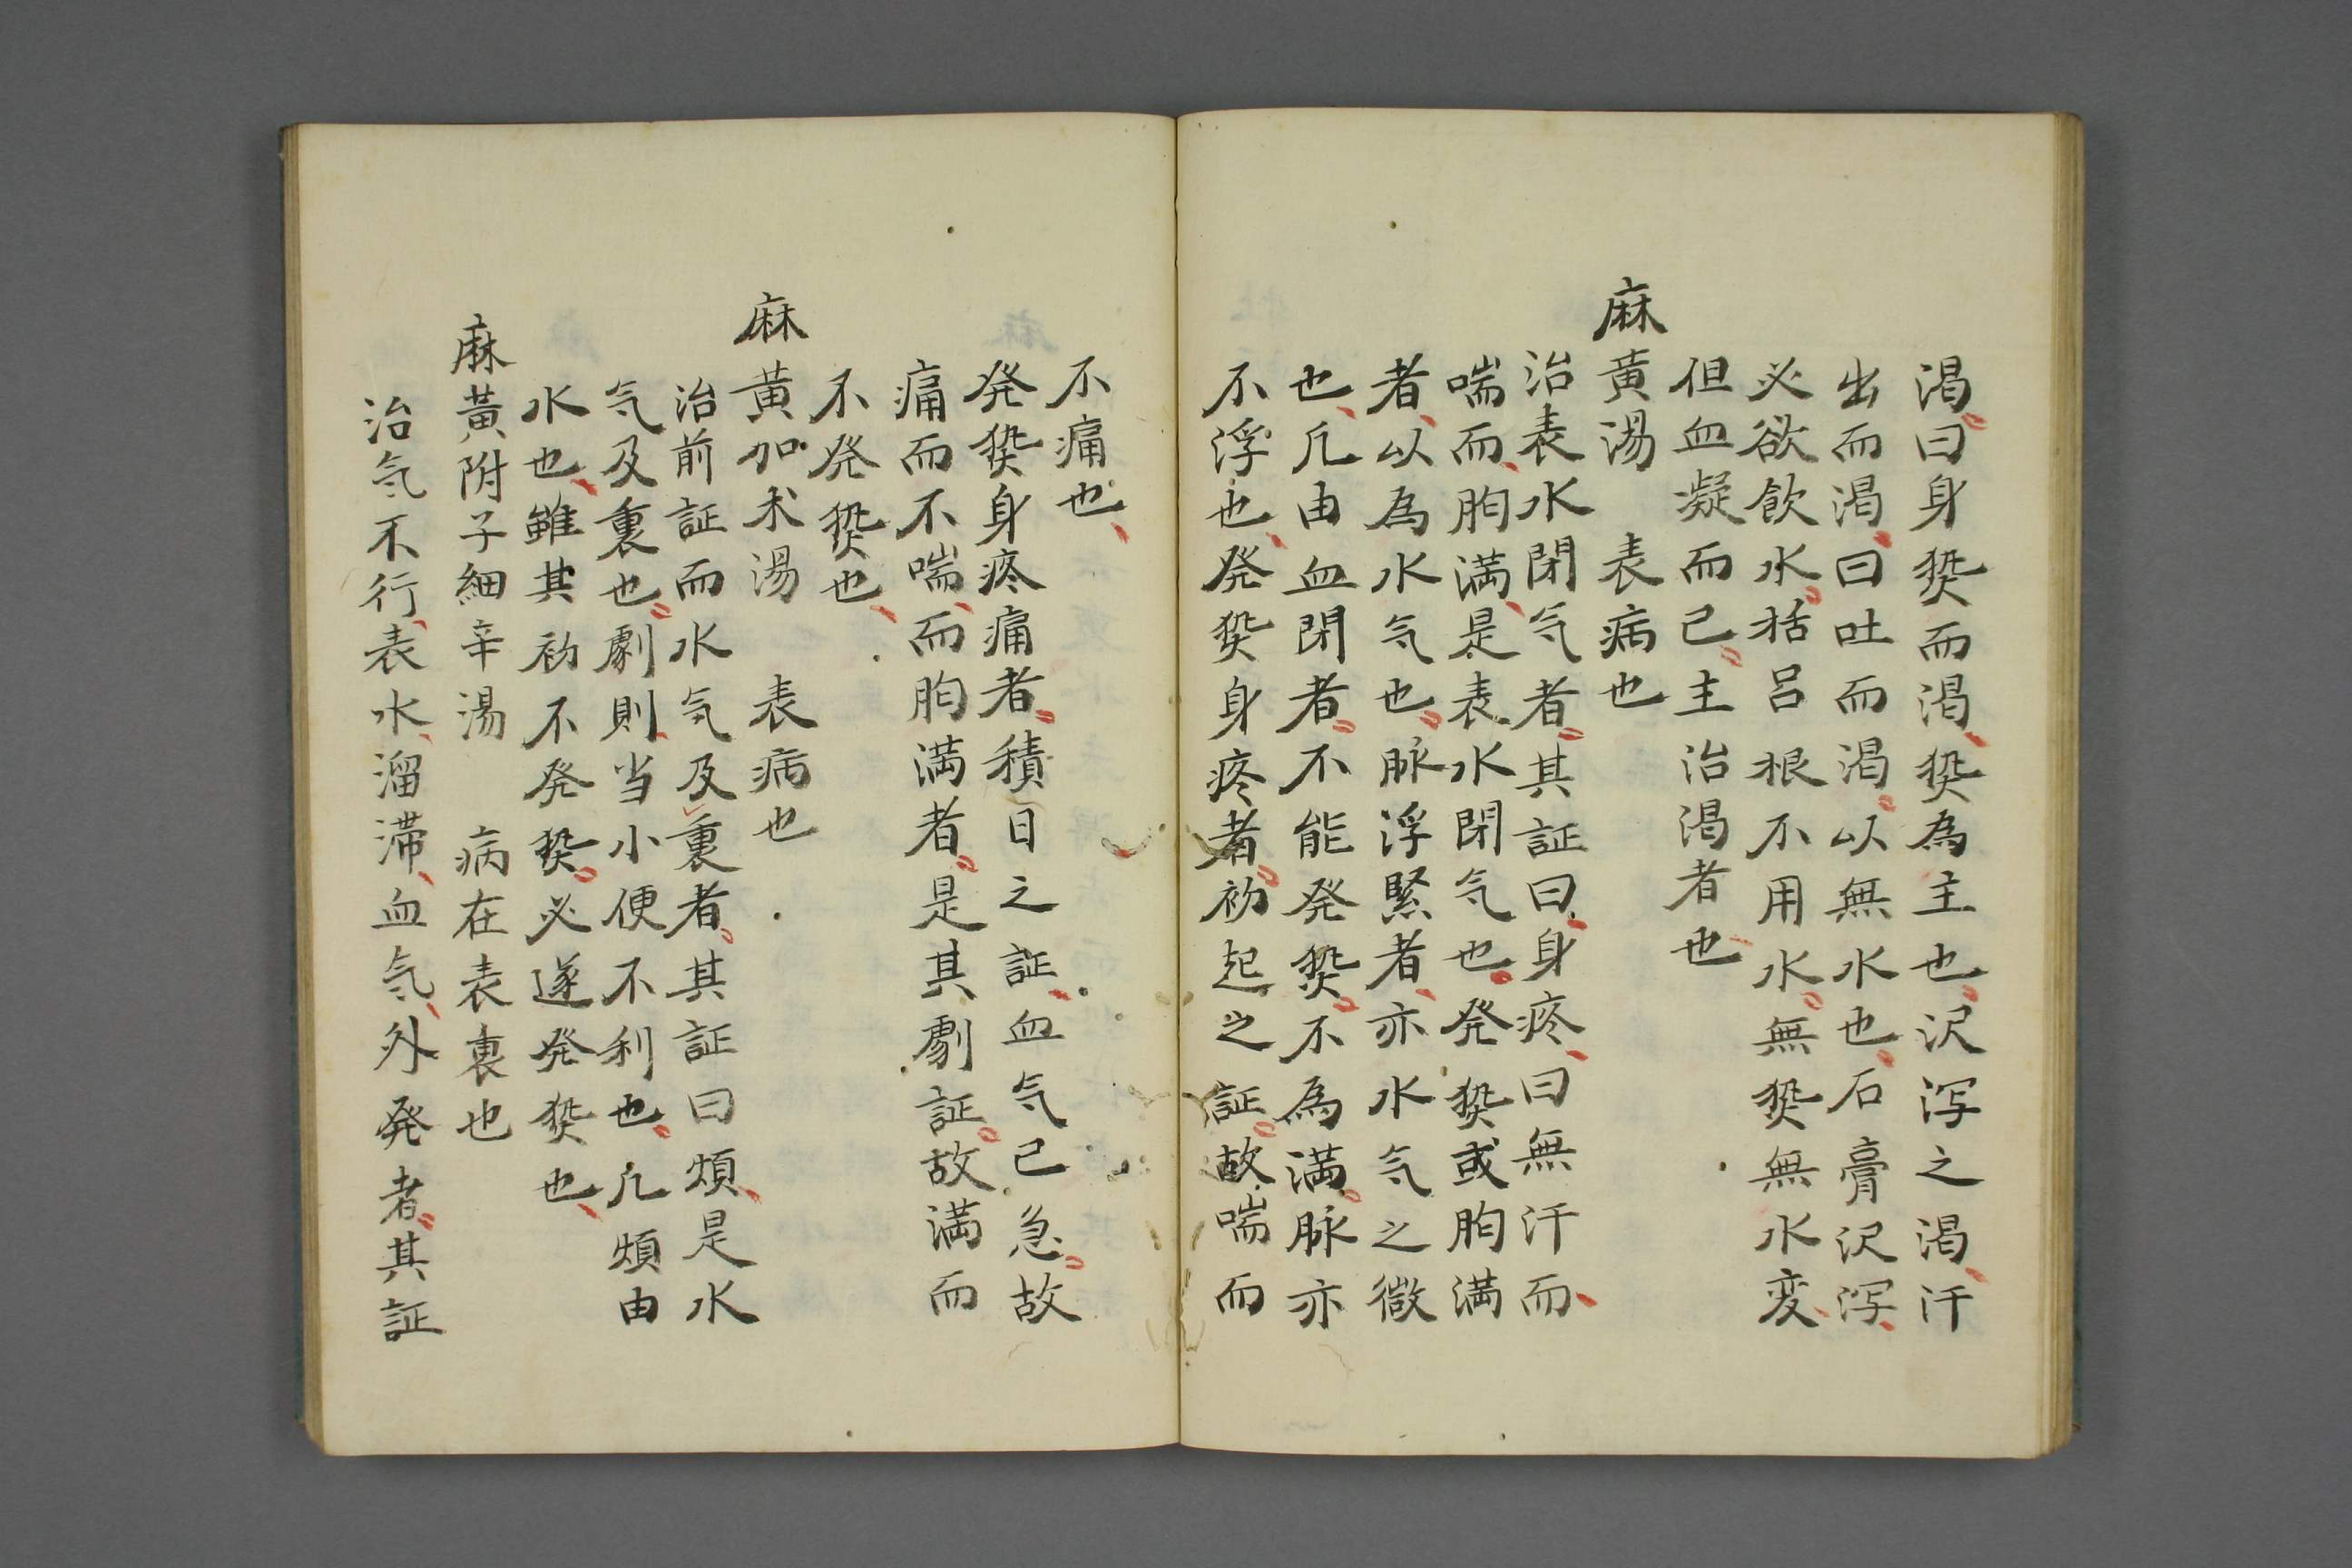 渇曰身𤼵而渇𤼵為主也沢泻之渇汗
出而渇曰吐而渇以無水也石膏沢泻
必欲飲水栝呂根不用水無𤼵無水変
但血凝而已主治渇者也
麻黄湯　表病也
治表水閉気者其証曰身疼曰無汗而
喘而胸満是表水閉気也発𤼵或胸満
者以為水気也脉浮緊者亦水気之徴
也凡由血閉者不能発𤼵不為満脉亦
不浮也発𤼵身疼者初起之証故喘而
不痛也
発𤼵身疼痛者積日之証血気已急故
痛而不喘而胸満者是其劇証故満而
不発𤼵也
麻黄加朮湯　表病也
治前証而水気及裏者其証曰煩是水
気及裏也劇則当小便不利也凡煩由
水也雖其初不発𤼵必遂発𤼵也
麻黄附子細辛湯　病在表裏也
治気不行表水溜滞血気外発者其証